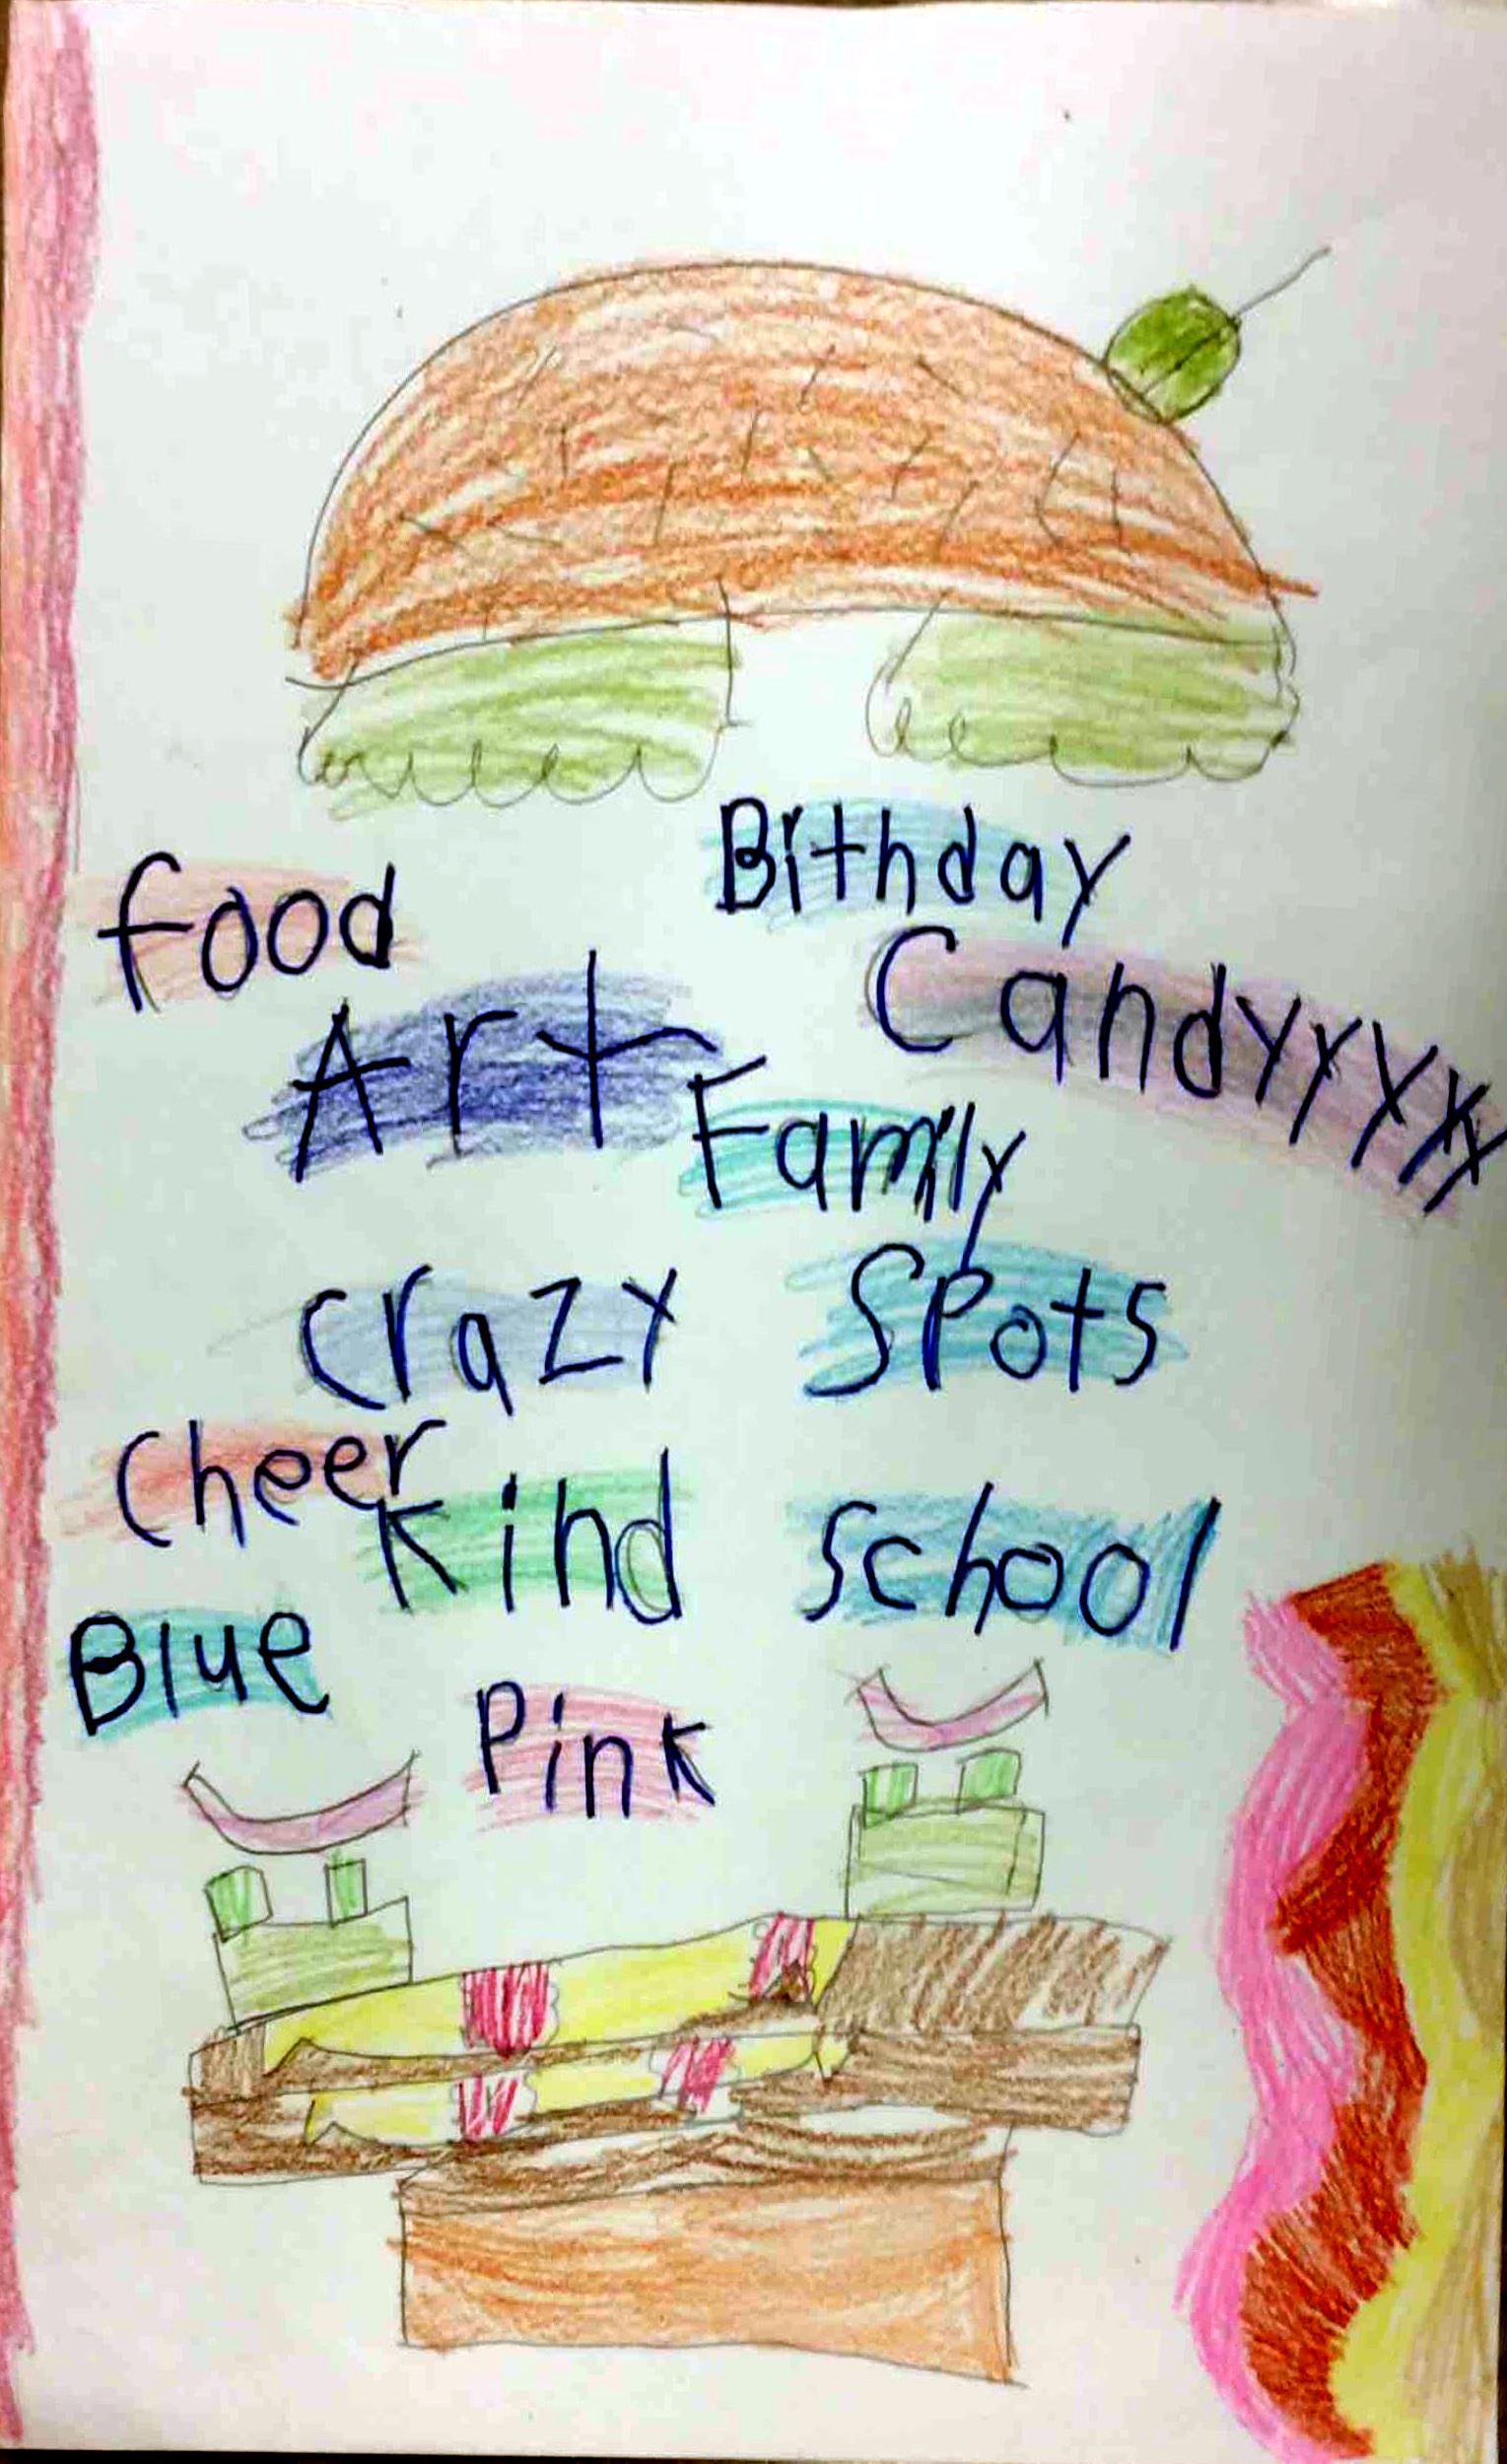 Bithday
food
Candyyyyy
Art
Family
crazy Spots
Cheer
Kind School
Blue
Pink